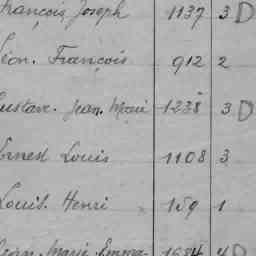 François Joseph 1137 3 D
Léon. François 912 2
Gustave. Jean. Marie 1238 3 D
Ernest Louis 1108 3
Louis. Henri 159 1
Marie. Emma- 1684 4 D